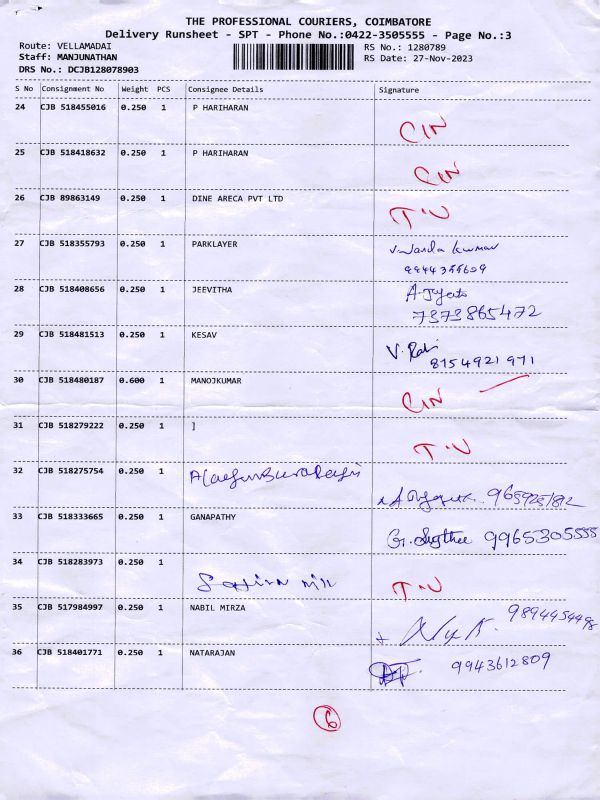 THE PROFESSIONAL COURIERS, COIMBATORE
Delivery Runsheet - SPT - Phone No.:0422-3505555 - Page No.:3
Route: VELLAMADAI RS No.: 1280789
Staff: MANJUNATHAN RS Date: 27-Nov-2023
DRS No.: DCJB128078903
S No Consignment No Weight PCS Consignee Details Signature
24 CJB 518455016 0.250 1 P HARIHARAN
CIN
25 CJB 518418632 0.250 1 P HARIHARAN
CIN
26 CJB 89863149 0.250 1 DINE ARECA PVT LTD
27 CJB 518355793 0.250 1 PARKLAYER
Kumar
28 CJB 518408656 0.250 1 JEEVITHA
7373865472
29 CJB 518481513 0.250 1 KESAV
V. Ravi
8154921971
30 CJB 518480187 0.600 1 MANOJKUMAR
CIN
31 CJB 518279222 0.250 1 ]
32 CJB 518275754 0.250 1
33 CJB 518333665 0.250 1 GANAPATHY
9965305555
34 CJB 518283973 0.250 1
35 CJB 517984997 0.250 1 NABIL MIRZA
9894454498
36 CJB 518401771 0.250 1 NATARAJAN
9943612809
6